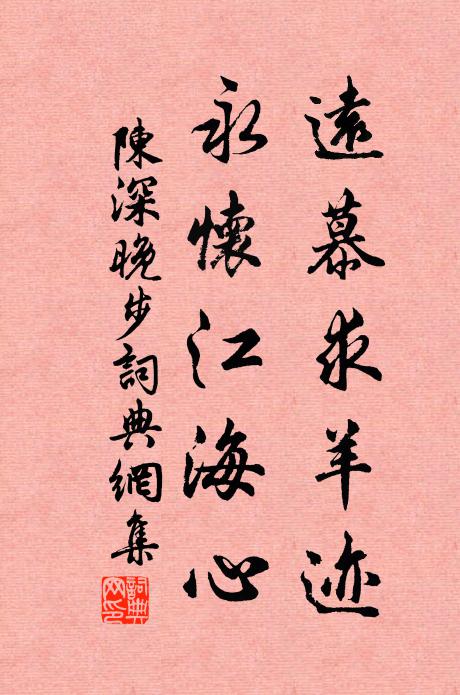 遠慕求羊迹
永懷江海心
陳深晚步詞典網集
詞典網印